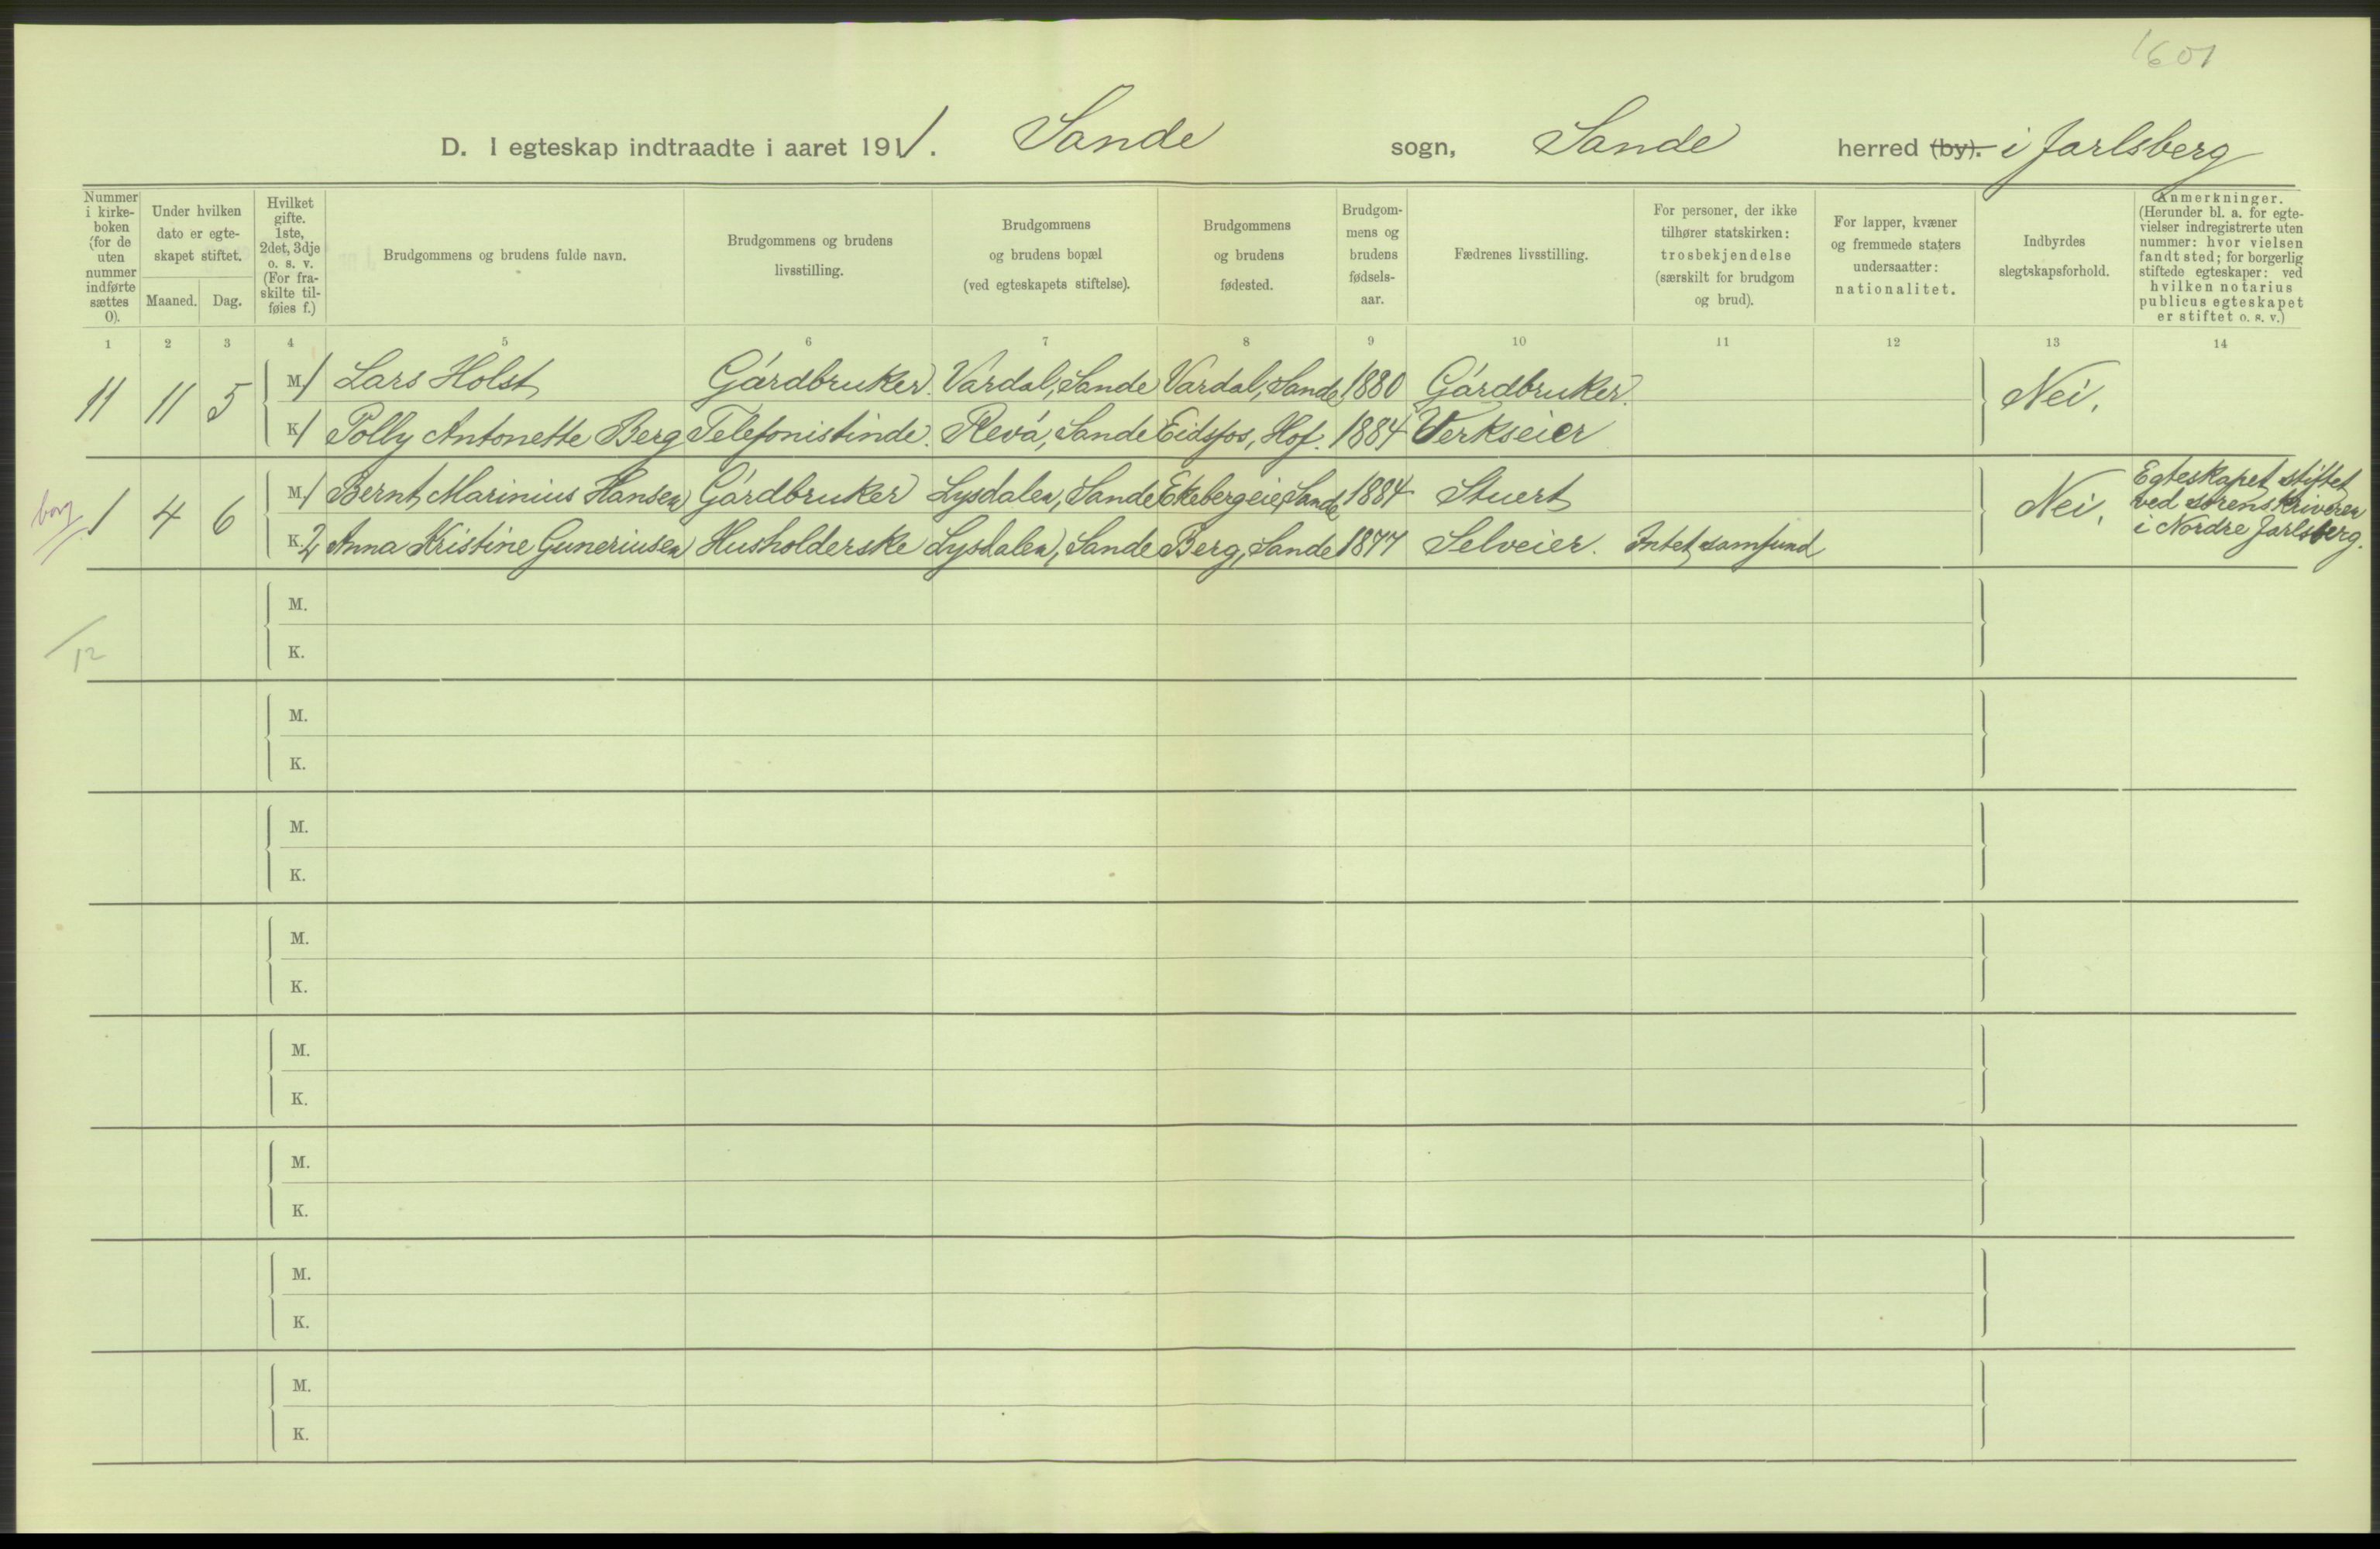 1601
D. I egteskap indtraadte i aaret 1911. Sande sogn, Sande herred (by). i Jarlsberg
Nummer i kirke- boken (for de uten nummer indførte sættes 0).
Under hvilken dato er egte- skapet stiftet.
Maaned. Dag.
Hvilket gifte. 1ste, 2det, 3dje o. s. v. (For fra- skilte til- føies f.)
Brudgommens og brudens fulde navn.
Brudgommens og brudens livsstilling.
Brudgommens og brudens bopæl (ved egteskapets stiftelse).
Brudgommens og brudens fødested.
Brudgom- mens og brudens fødsels- aar.
Fædrenes livsstilling.
For personer, der ikke tilhører statskirken: trosbekjendelse (særskilt for brudgom og brud).
For lapper, kvæner og fremmede staters undersaatter: nationalitet.
Indbyrdes slegtskapsforhold.
Anmerkninger. (Herunder bl. a. for egte- vielser indregistrerte uten nummer: hvor vielsen fandt sted; for borgerlig stiftede egteskaper: ved hvilken notarius publicus egteskapet er stiftet o. s. v.)
1 2 3 4 5 6 7 8 9 10 11 12 13 14
11 11 5 M. 1 Lars Holst Gárdbruker. Vardal, Sande Vardal, Sande 1880 Gárdbruker. Nei.
K. 1 Polly Antonette Berg Telefonistinde. Revá, Sande Eidsfos, Hof. 1884 Verkseier
borg 1 4 6 M. 1 Bernt Marinius Hansen Gárdbruker Lysdalen, Sande Ekebergeie, Sande 1884 Stuert Nei. Egteskapet stiftet
ved sorenskriveren
i Nordre Jarlsberg.
K. 2 Anna Kristine Guneriusen Husholderske Lysdalen, Sande Berg, Sande 1877 Selveier. Intet samfund
M.
/12
K.
M.
K.
M.
K.
M.
K.
M.
K.
M.
K.
M.
K.
M.
K.